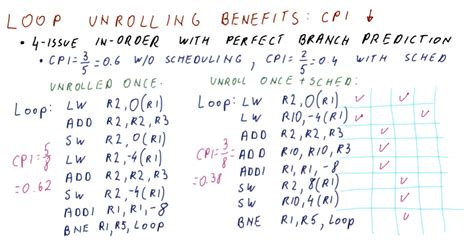 LOOP UNROLLING BENEFITS: CPI ↓
• 4-ISSUE IN-ORDER WITH PERFECT BRANCH PREDICTION
• CPI = 3/5 = 0.6 W/O SCHEDULING, CPI = 2/5 = 0.4 WITH SCHED
UNROLLED ONCE.
Loop: LW R2, 0(R1)
ADD R2, R2, R3
SW R2, 0(R1)
LW R2, -4(R1)
ADD R2, R2, R3
SW R2, -4(R1)
ADDI R1, R1, -8
BNE R1, R5, LOOP
CPI = 5/8
= 0.62
UNROLL ONCE + SCHED:
Loop: LW R2, 0(R1)
LW R10, -4(R1)
ADD R2, R2, R3
ADD R10, R10, R3
ADDI R1, R1, -8
SW R2, 8(R1)
SW R10, 4(R1)
BNE R1, R5, Loop
CPI = 3/8 =
= 0.38